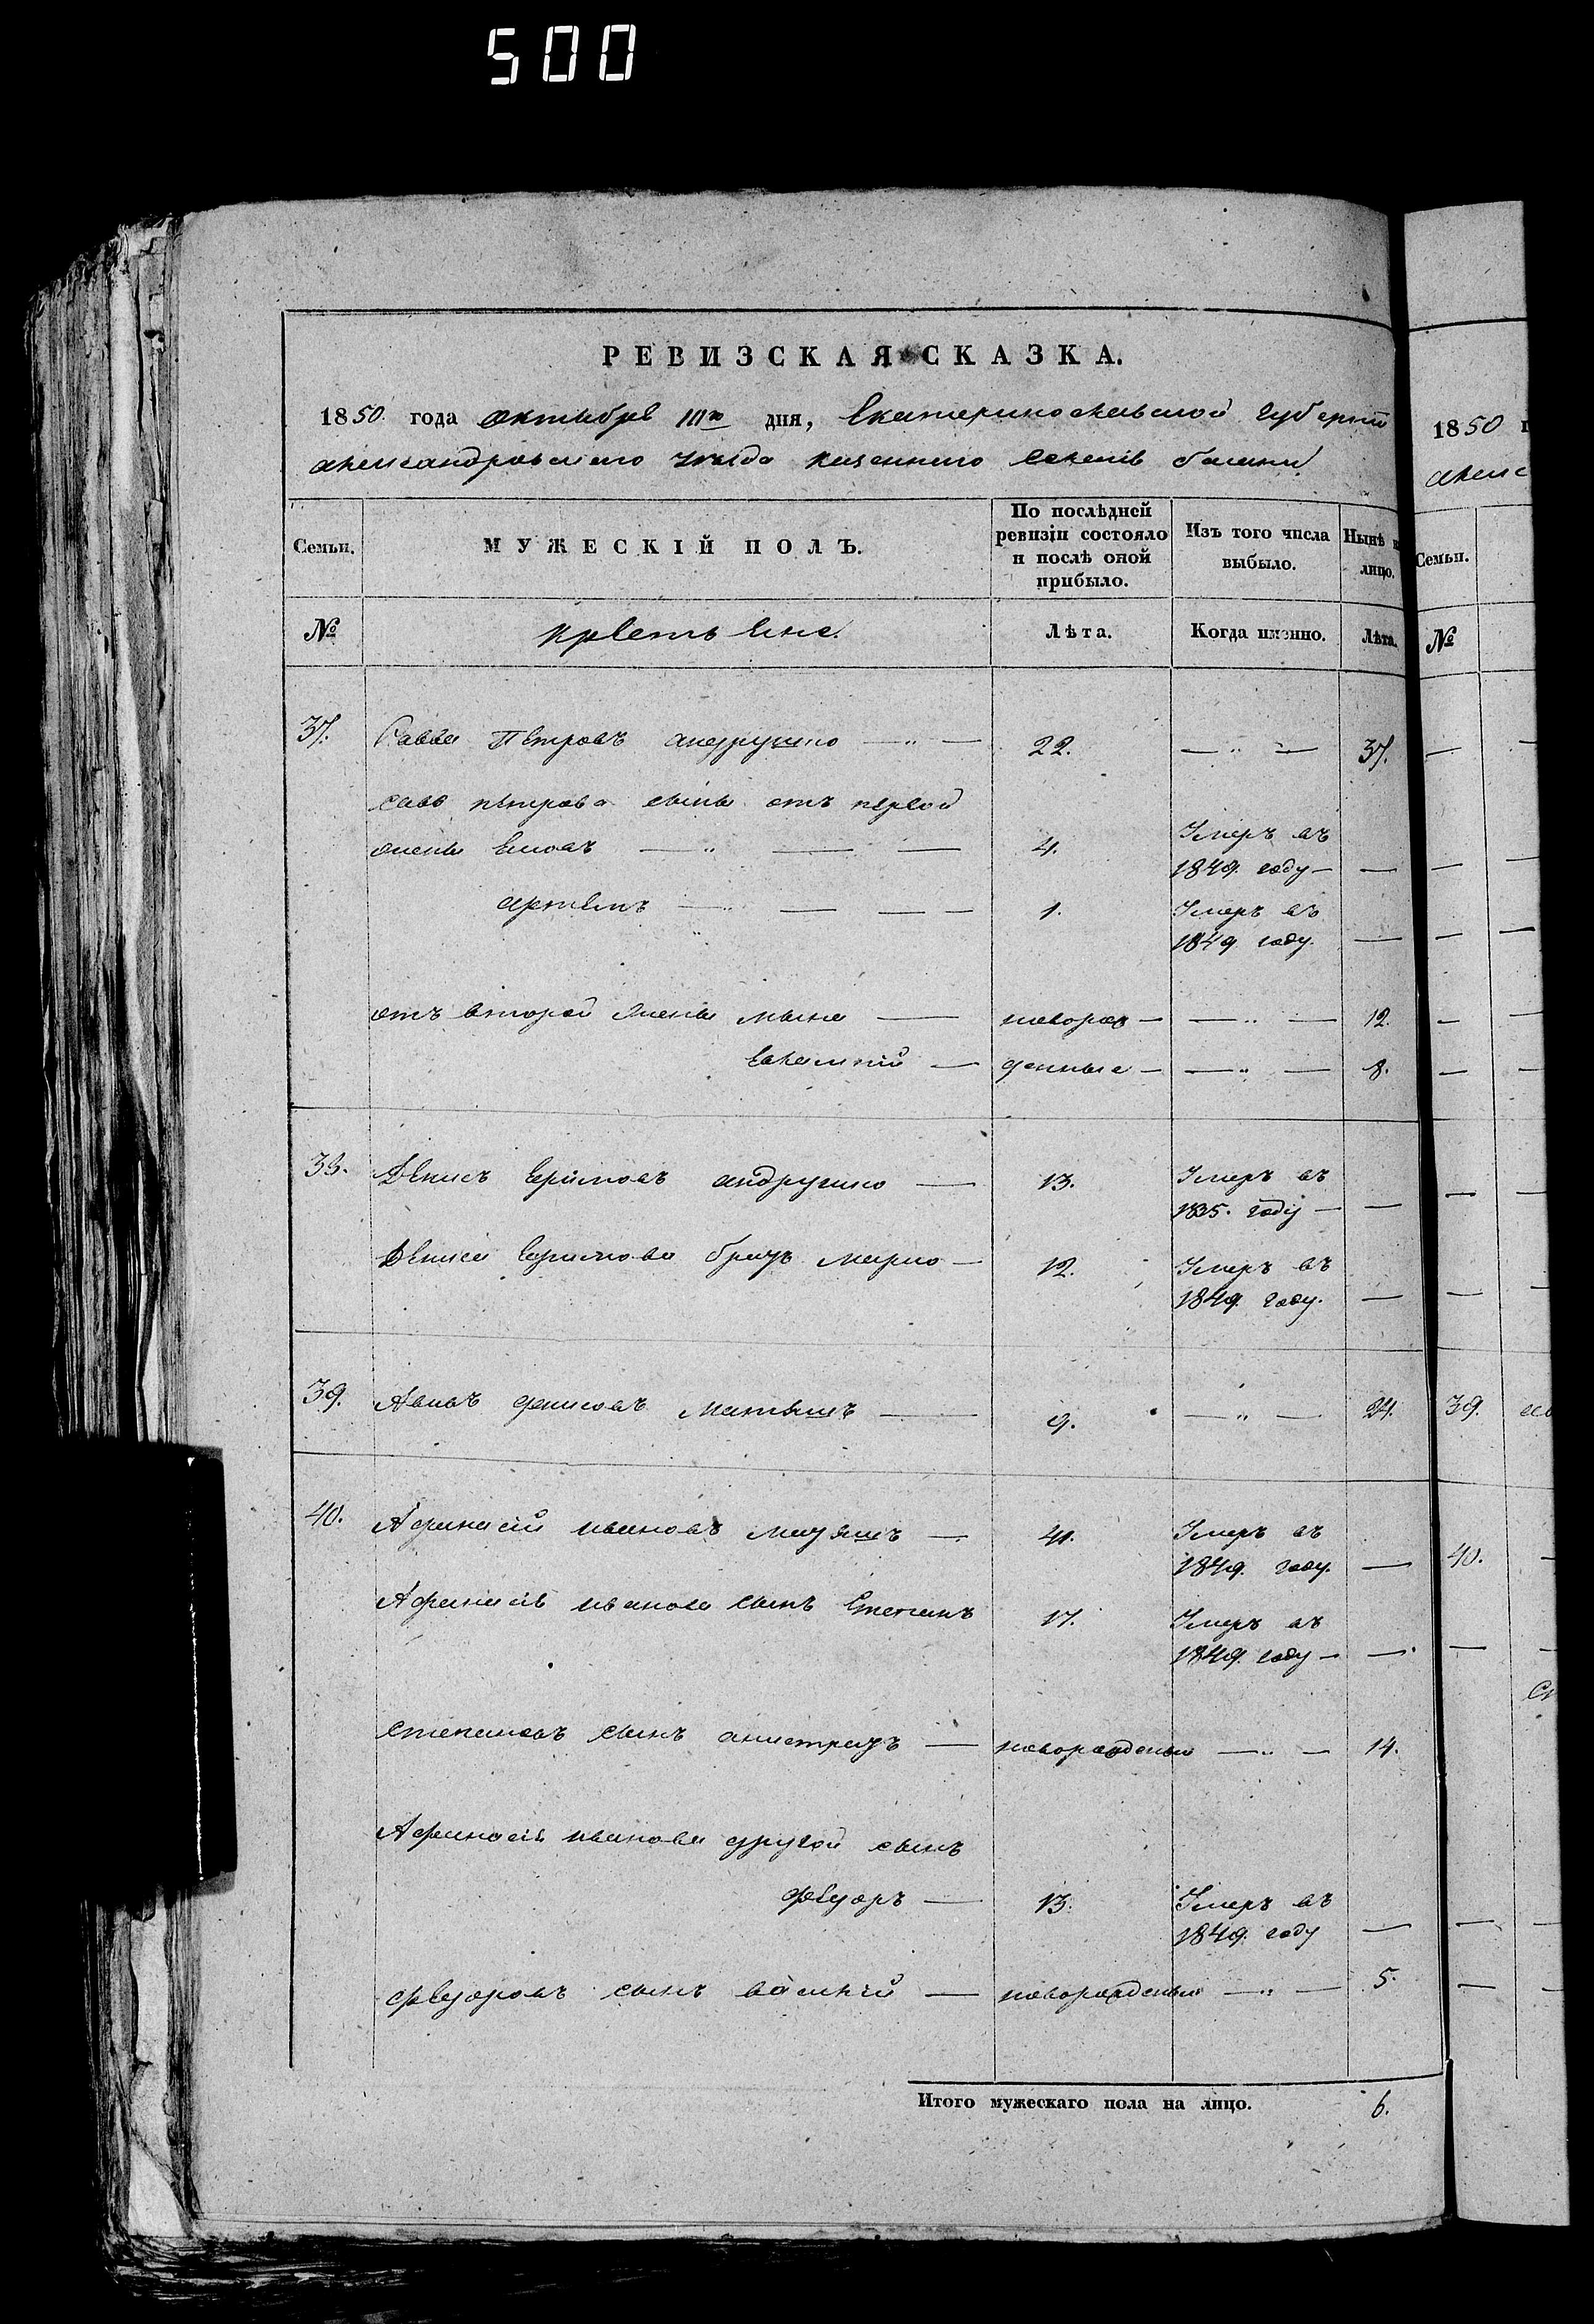 500
РЕВИЗСКАЯ СКАЗКА.
1850 года октября дня, Екатеринославской губерніи
александровского уезда казенного селенія
Семьи. МУЖЕСКІЙ ПОЛЪ. По послѣдней ревизіи состояло и послѣ оной прибыло. Изъ того числа выбыло. Нынѣ на лицо.
№ Лѣта. Когда именно. Лѣта.
37. Савва Петровъ андрущко — " — 22. — " — 37.
саво петрова сынъ отъ первой
жены — " — 4. Умеръ въ 1849. году —
артемъ — " — 1. Умеръ въ 1849. году. —
отъ второй жены — новорож — — " — 12.
— денные — — " — 8.
38. Денисъ андрущко — 13. Умеръ въ 1835. году — —
Дениса братъ марко — 12. Умеръ въ 1849. году. —
39. денисовъ матяшъ — 9. — " — 24.
40. Афанасій ивановъ матяшъ — 41. Умеръ въ 1849. году. —
Афанасія иванова сынъ Степанъ 17. Умеръ въ 1849. году — —
степановъ сынъ — новорожденый — " — 14.
Афанасія иванова другой сынъ
Федоръ — 13. Умеръ въ 1849. году —
Федоровъ сынъ василій — новорожденый — " — 5.
Итого мужескаго пола на лицо. 6.
1850
Семьи.
№
39.
40.